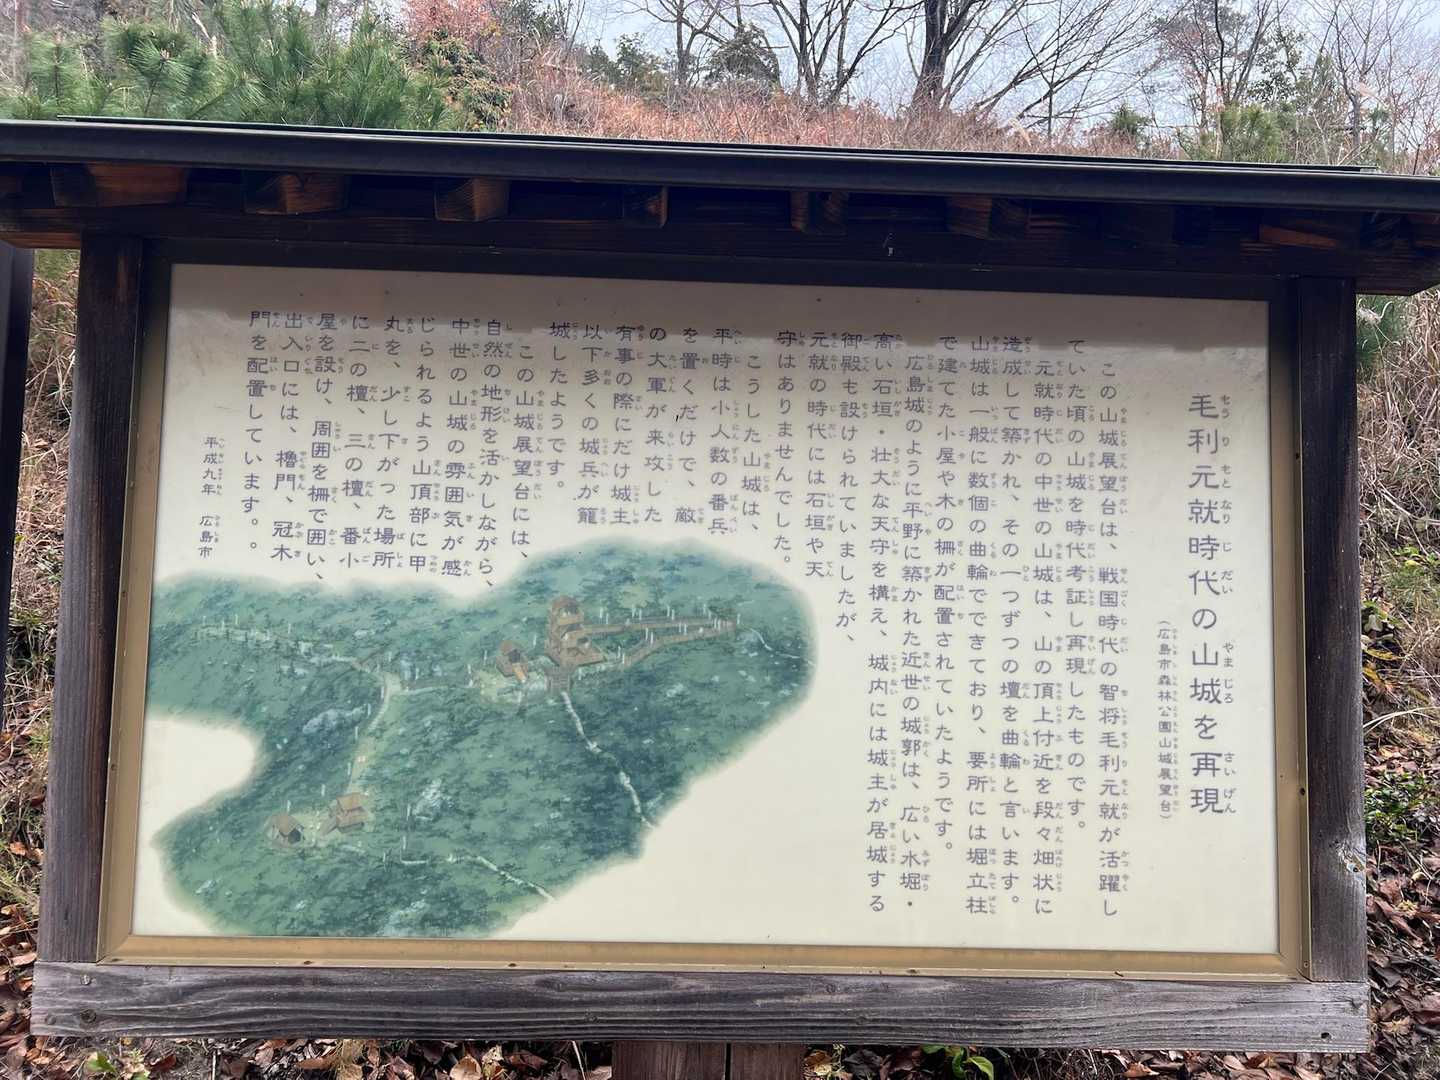 毛利元就時代の山城を再現
（広島市森林公園山城展望台）
この山城展望台は、戦国時代の智将毛利元就が活躍し
ていた頃の山城を時代考証し再現したものです。
元就時代の中世の山城は、山の頂上付近を段々畑状に
造成して築かれ、その一つずつの壇を曲輪と言います。
山城は一般に数個の曲輪でできており、要所には堀立柱
で建てた小屋や木の柵が配置されていたようです。
広島城のように平野に築かれた近世の城郭は、広い水堀・
高い石垣・壮大な天守を構え、城内には城主が居城する
御殿も設けられていましたが、
元就の時代には石垣や天
守はありませんでした。
こうした山城は、
平時は小人数の番兵
を置くだけで、敵
の大軍が来攻した
有事の際にだけ城主
以下多くの城兵が籠
城したようです。
この山城展望台には、
自然の地形を活かしながら、
中世の山城の雰囲気が感
じられるよう山頂部に甲
丸を、少し下がった場所
に二の檀、三の檀、番小
屋を設け、周囲を柵で囲い、
出入口には、櫓門、冠木
門を配置しています。。
平成九年　広島市